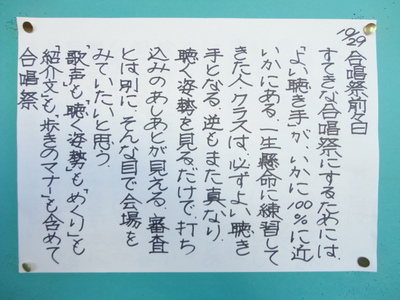 10/29 合唱祭前々日
すてきな合唱祭にするためには、
「よい聴き手」が、いかに100%に近
いかにある。一生懸命に練習して
きた人・クラスは、必ずよい聴き
手となる。逆もまた真なり。
聴く姿勢を見るだけで、打ち
込みのあしあとが見える。審査
とは別に、そんな目で会場を
みていたいと思う。
「歌声」も、「聴く姿勢」も「めくり」も
「紹介文」も、「歩きのマナー」も含めて
合唱祭